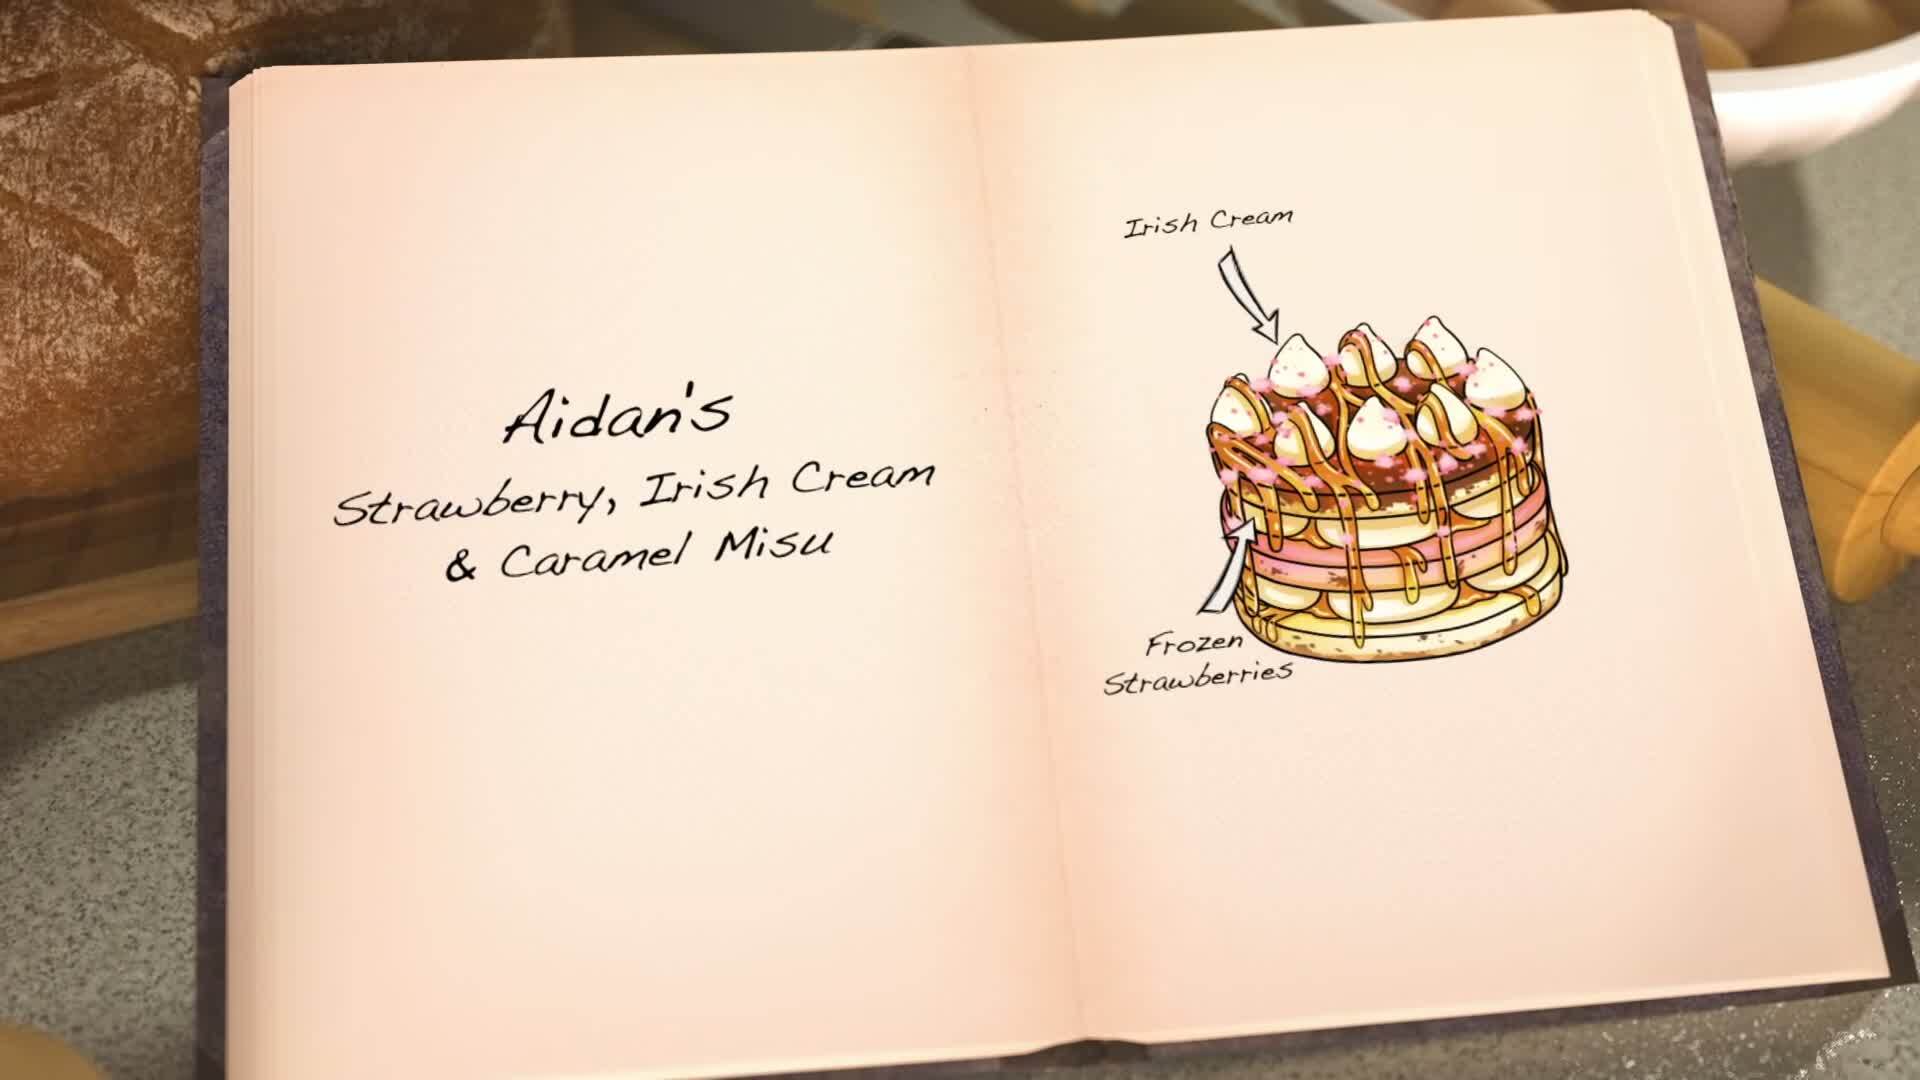 Aidan's
Strawberry, Irish Cream
& Caramel Misu
Irish Cream
Frozen
Strawberries